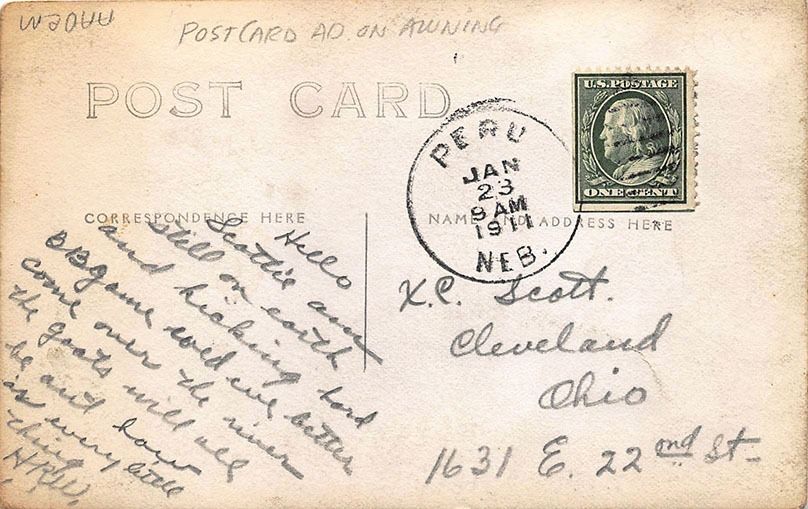 POSTCARD AD. ON AWNING
POST CARD
U.S. POSTAGE
ONE CENT
PERU
JAN
23
9 AM
1911
NEB.
CORRESPONDENCE HERE
NAME AND ADDRESS HERE
Hello
Scottie am
still on earth
and kicking had
BB game
come over the river
the goats will all
be and how
is every little
thing
H.R.W.
X.C. Scott.
Cleveland
Ohio
1631 E. 22nd St-